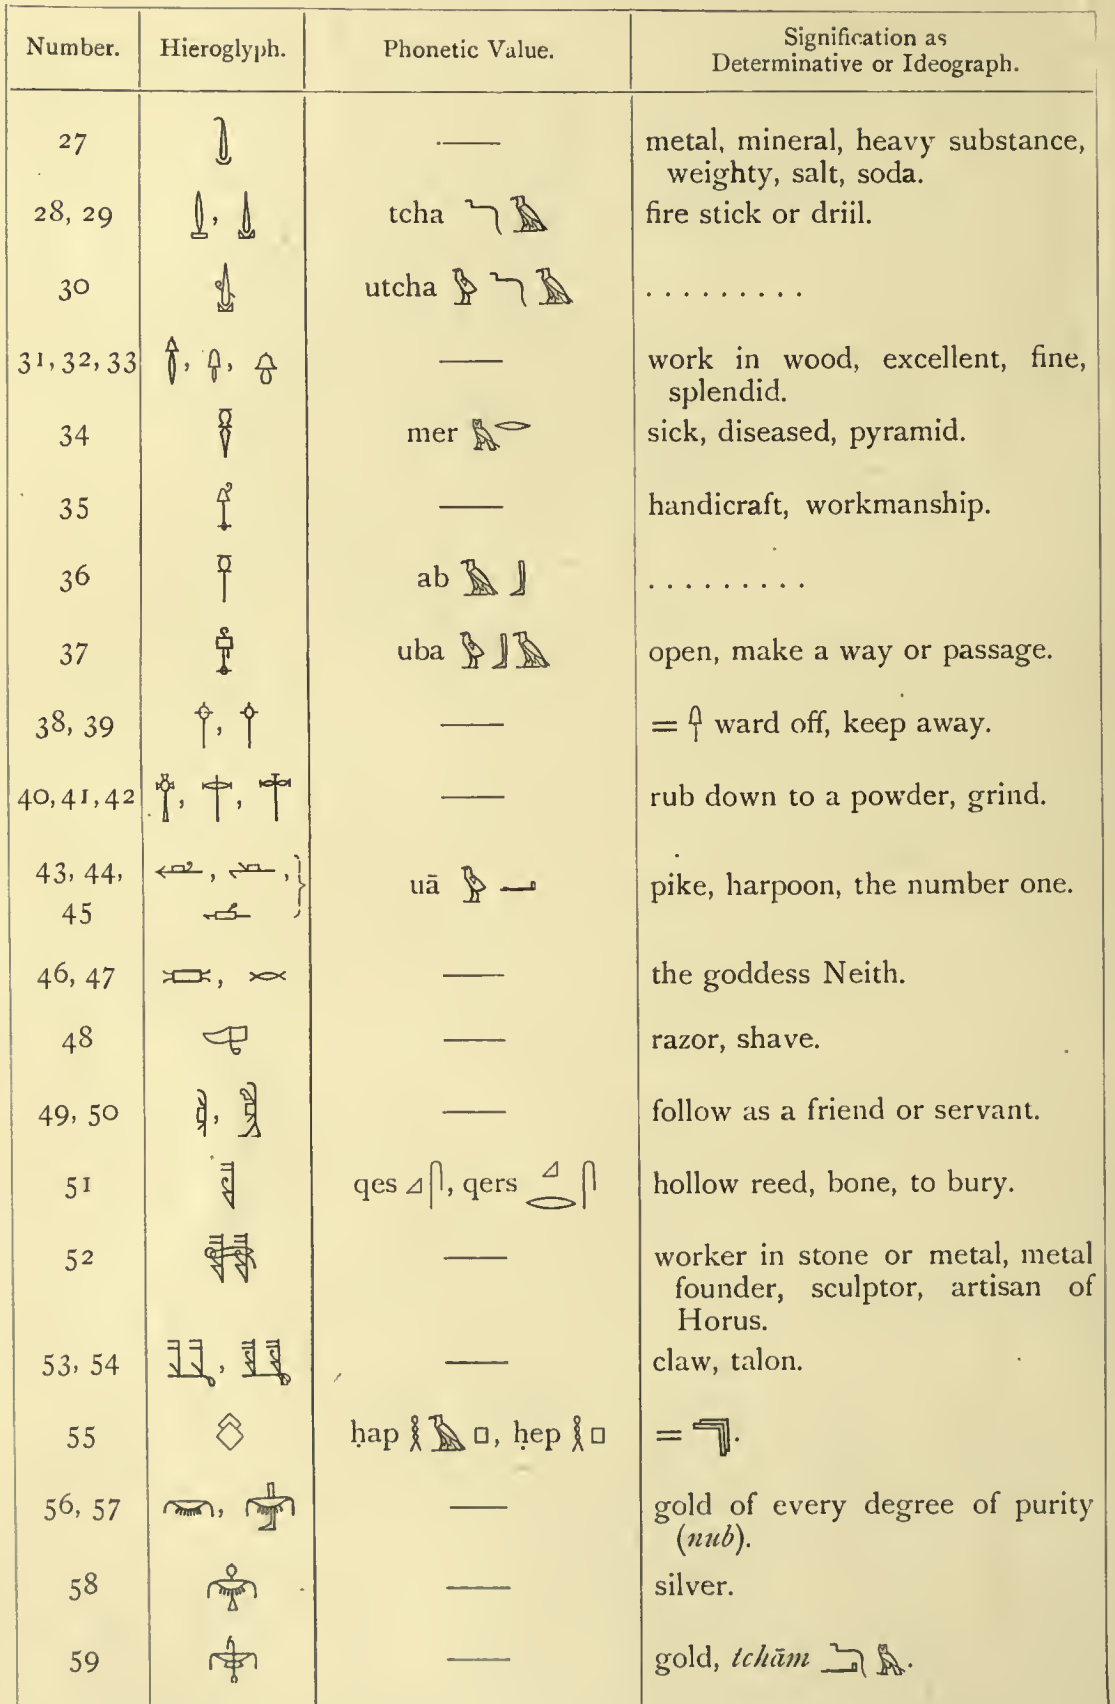 Number. Hieroglyph. Phonetic Value. Signification as
Determinative or Ideograph.
27 — metal, mineral, heavy substance,
weighty, salt, soda.
28, 29 tcha 𓆓𓄿 fire stick or driil.
30 utcha 𓅱𓆓𓄿 . . . . . . . . .
31, 32, 33 — work in wood, excellent, fine,
splendid.
34 mer 𓅓𓂋 sick, diseased, pyramid.
35 — handicraft, workmanship.
36 ab 𓄿𓃀 . . . . . . . . .
37 uba 𓅱𓃀𓄿 open, make a way or passage.
38, 39 — = ward off, keep away.
40, 41, 42 — rub down to a powder, grind.
43, 44,
45 uā 𓅱𓂝 pike, harpoon, the number one.
46, 47 — the goddess Neith.
48 — razor, shave.
49, 50 — follow as a friend or servant.
51 qes 𓈎𓋴, qers 𓈎𓂋𓋴 hollow reed, bone, to bury.
52 — worker in stone or metal, metal
founder, sculptor, artisan of
Horus.
53, 54 — claw, talon.
55 ḥap 𓎛𓄿𓊪, ḥep 𓎛𓊪 = .
56, 57 — gold of every degree of purity
(nub).
58 — silver.
59 — gold, tchām 𓆓𓂝𓅓.